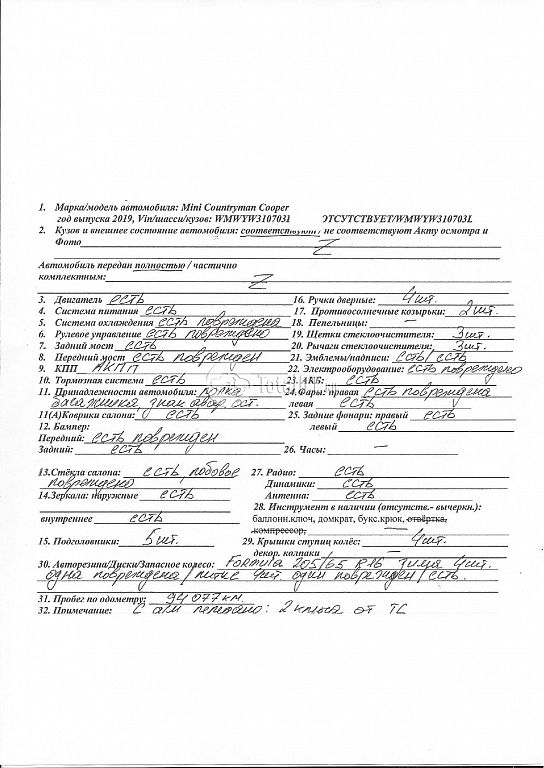 1. Марка/модель автомобиля: Mini Countryman Cooper
год выпуска 2019, Vin/шасси/кузов: WMWYW310703L ОТСУТСТВУЕТ/WMWYW310703L
2. Кузов и внешнее состояние автомобиля: соответствуют / не соответствуют Акту осмотра и
Фото Z
Автомобиль передан полностью / частично
комплектным: Z
3. Двигатель есть
4. Система питания есть
5. Система охлаждения есть повреждена
6. Рулевое управление есть повреждено
7. Задний мост есть
8. Передний мост есть поврежден
9. КПП АКПП
10. Тормозная система есть
11. Принадлежности автомобиля:
знак авар. ост.
11(А)Коврики салона: есть
12. Бампер:
Передний: есть поврежден
Задний: есть
13.Стёкла салона: есть, лобовое
повреждено
14.Зеркала: наружные есть
внутреннее есть
15. Подголовники: 5 шт.
16. Ручки дверные: 4 шт.
17. Противосолнечные козырьки: 2 шт.
18. Пепельницы: —
19. Щетки стеклоочистителя: 3 шт.
20. Рычаги стеклоочистителя: 3 шт.
21. Эмблемы/надписи: есть/есть
22. Электрооборудование: есть повреждено
23. АКБ: есть
24.Фары: правая есть повреждена
левая есть
25. Задние фонари: правый есть
левый есть
26. Часы: —
27. Радио: есть
Динамики: есть
Антенна: есть
28. Инструмент в наличии (отсутств.- вычеркн.):
баллонн.ключ, домкрат, букс.крюк, отвёртка,
компрессор, —
29. Крышки ступиц колёс: 4 шт.
декор. колпаки —
30. Авторезина/Диски/Запасное колесо: Formula 205/65 R16 зима 4 шт.
одна повреждена / литые 4 шт. один поврежден / есть.
31. Пробег по одометру: 94 077 км.
32. Примечание: С а/м передано: 2 ключа от ТС